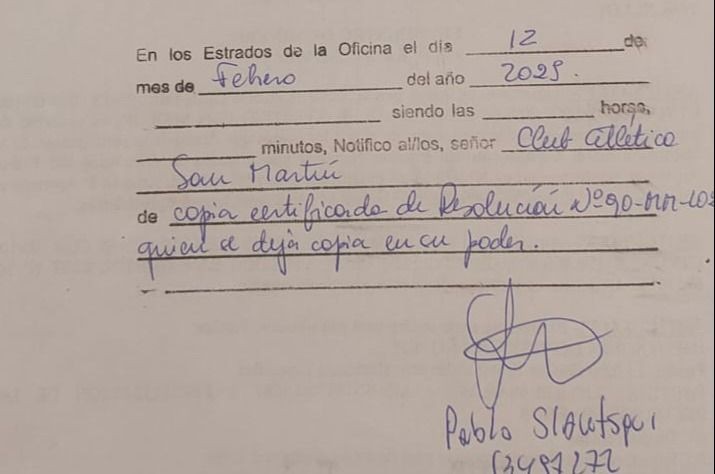 En los Estrados de la Oficina el día 12 de
mes de Febrero del año 2025.
siendo las horas,
minutos, Notifico al/los, señor Club Atlético
San Martín
de copia certificada de Resolución Nº90-
quien se deja copia en su poder.
Pablo